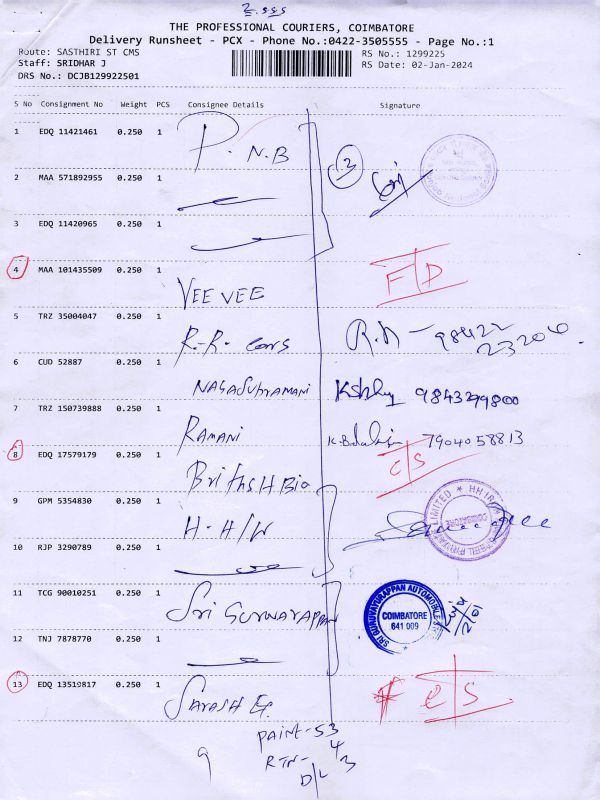 THE PROFESSIONAL COURIERS, COIMBATORE
Delivery Runsheet - PCX - Phone No.:0422-3505555 - Page No.:1
Route: SASTHIRI ST CMS
RS No.: 1299225
Staff: SRIDHAR J
RS Date: 02-Jan-2024
DRS No.: DCJB129922501
S No Consignment No Weight PCS Consignee Details Signature
1 EDQ 11421461 0.250 1 P. N.B
2 MAA 571892955 0.250 1
3
3 EDQ 11420965 0.250 1
4 MAA 101435509 0.250 1 VEE VEE F/D
5 TRZ 35004047 0.250 1 R.R. Cons R.N - 98422
23206.
6 CUD 52887 0.250 1 NAGASUbramani 9843299800
7 TRZ 150739888 0.250 1 RAMANI 7904058813
8 EDQ 17579179 0.250 1 British Bio C/S
9 GPM 5354830 0.250 1 H.H/W
10 RJP 3290789 0.250 1
11 TCG 90010251 0.250 1 Sri GURUVAYURAPPAN
SRI GURUVAYURAPPAN AUTOMOBILES
COIMBATORE
641 009
2/01
12 TNJ 7878770 0.250 1
13 EDQ 13519817 0.250 1 C/S
9
4
RTN- 3
D/L